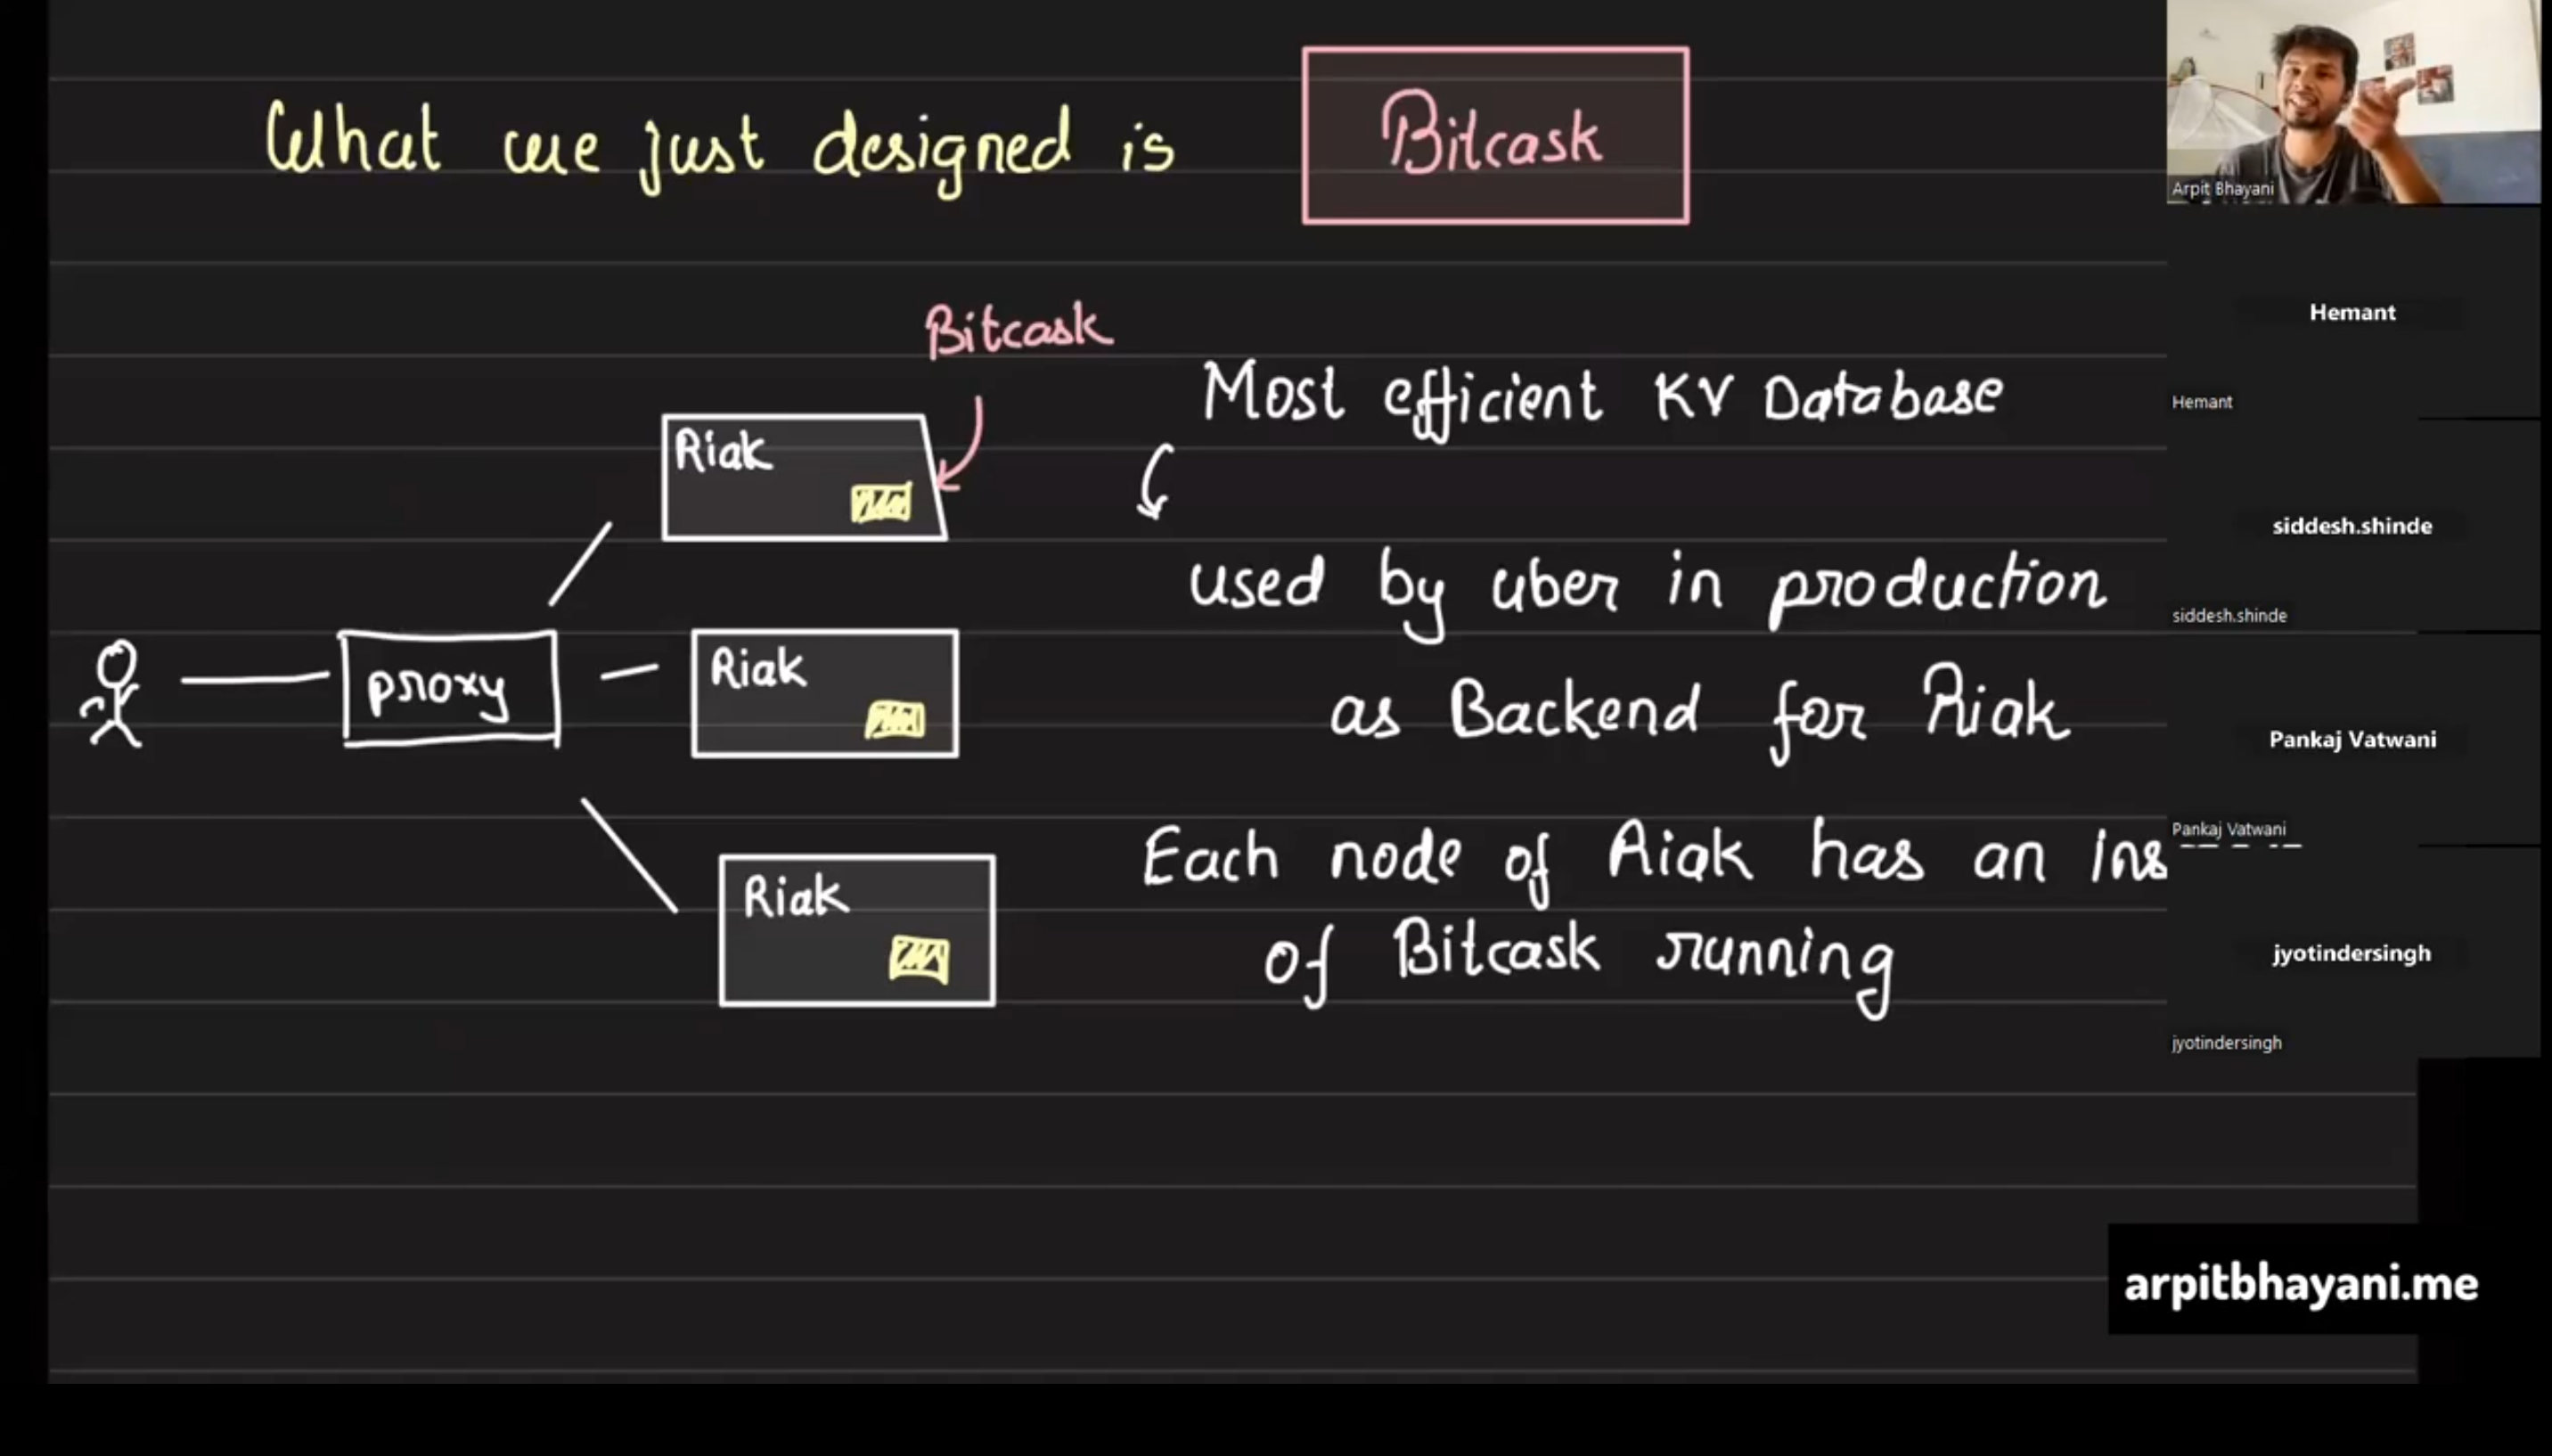 What we just designed is Bitcask
Bitcask
Most efficient KV Database
used by uber in production
as Backend for Riak
Each node of Riak has an Ins
of Bitcask running
Riak
proxy
Riak
Riak
Arpit Bhayani
Hemant
Hemant
siddesh.shinde
siddesh.shinde
Pankaj Vatwani
Pankaj Vatwani
jyotindersingh
jyotindersingh
arpitbhayani.me